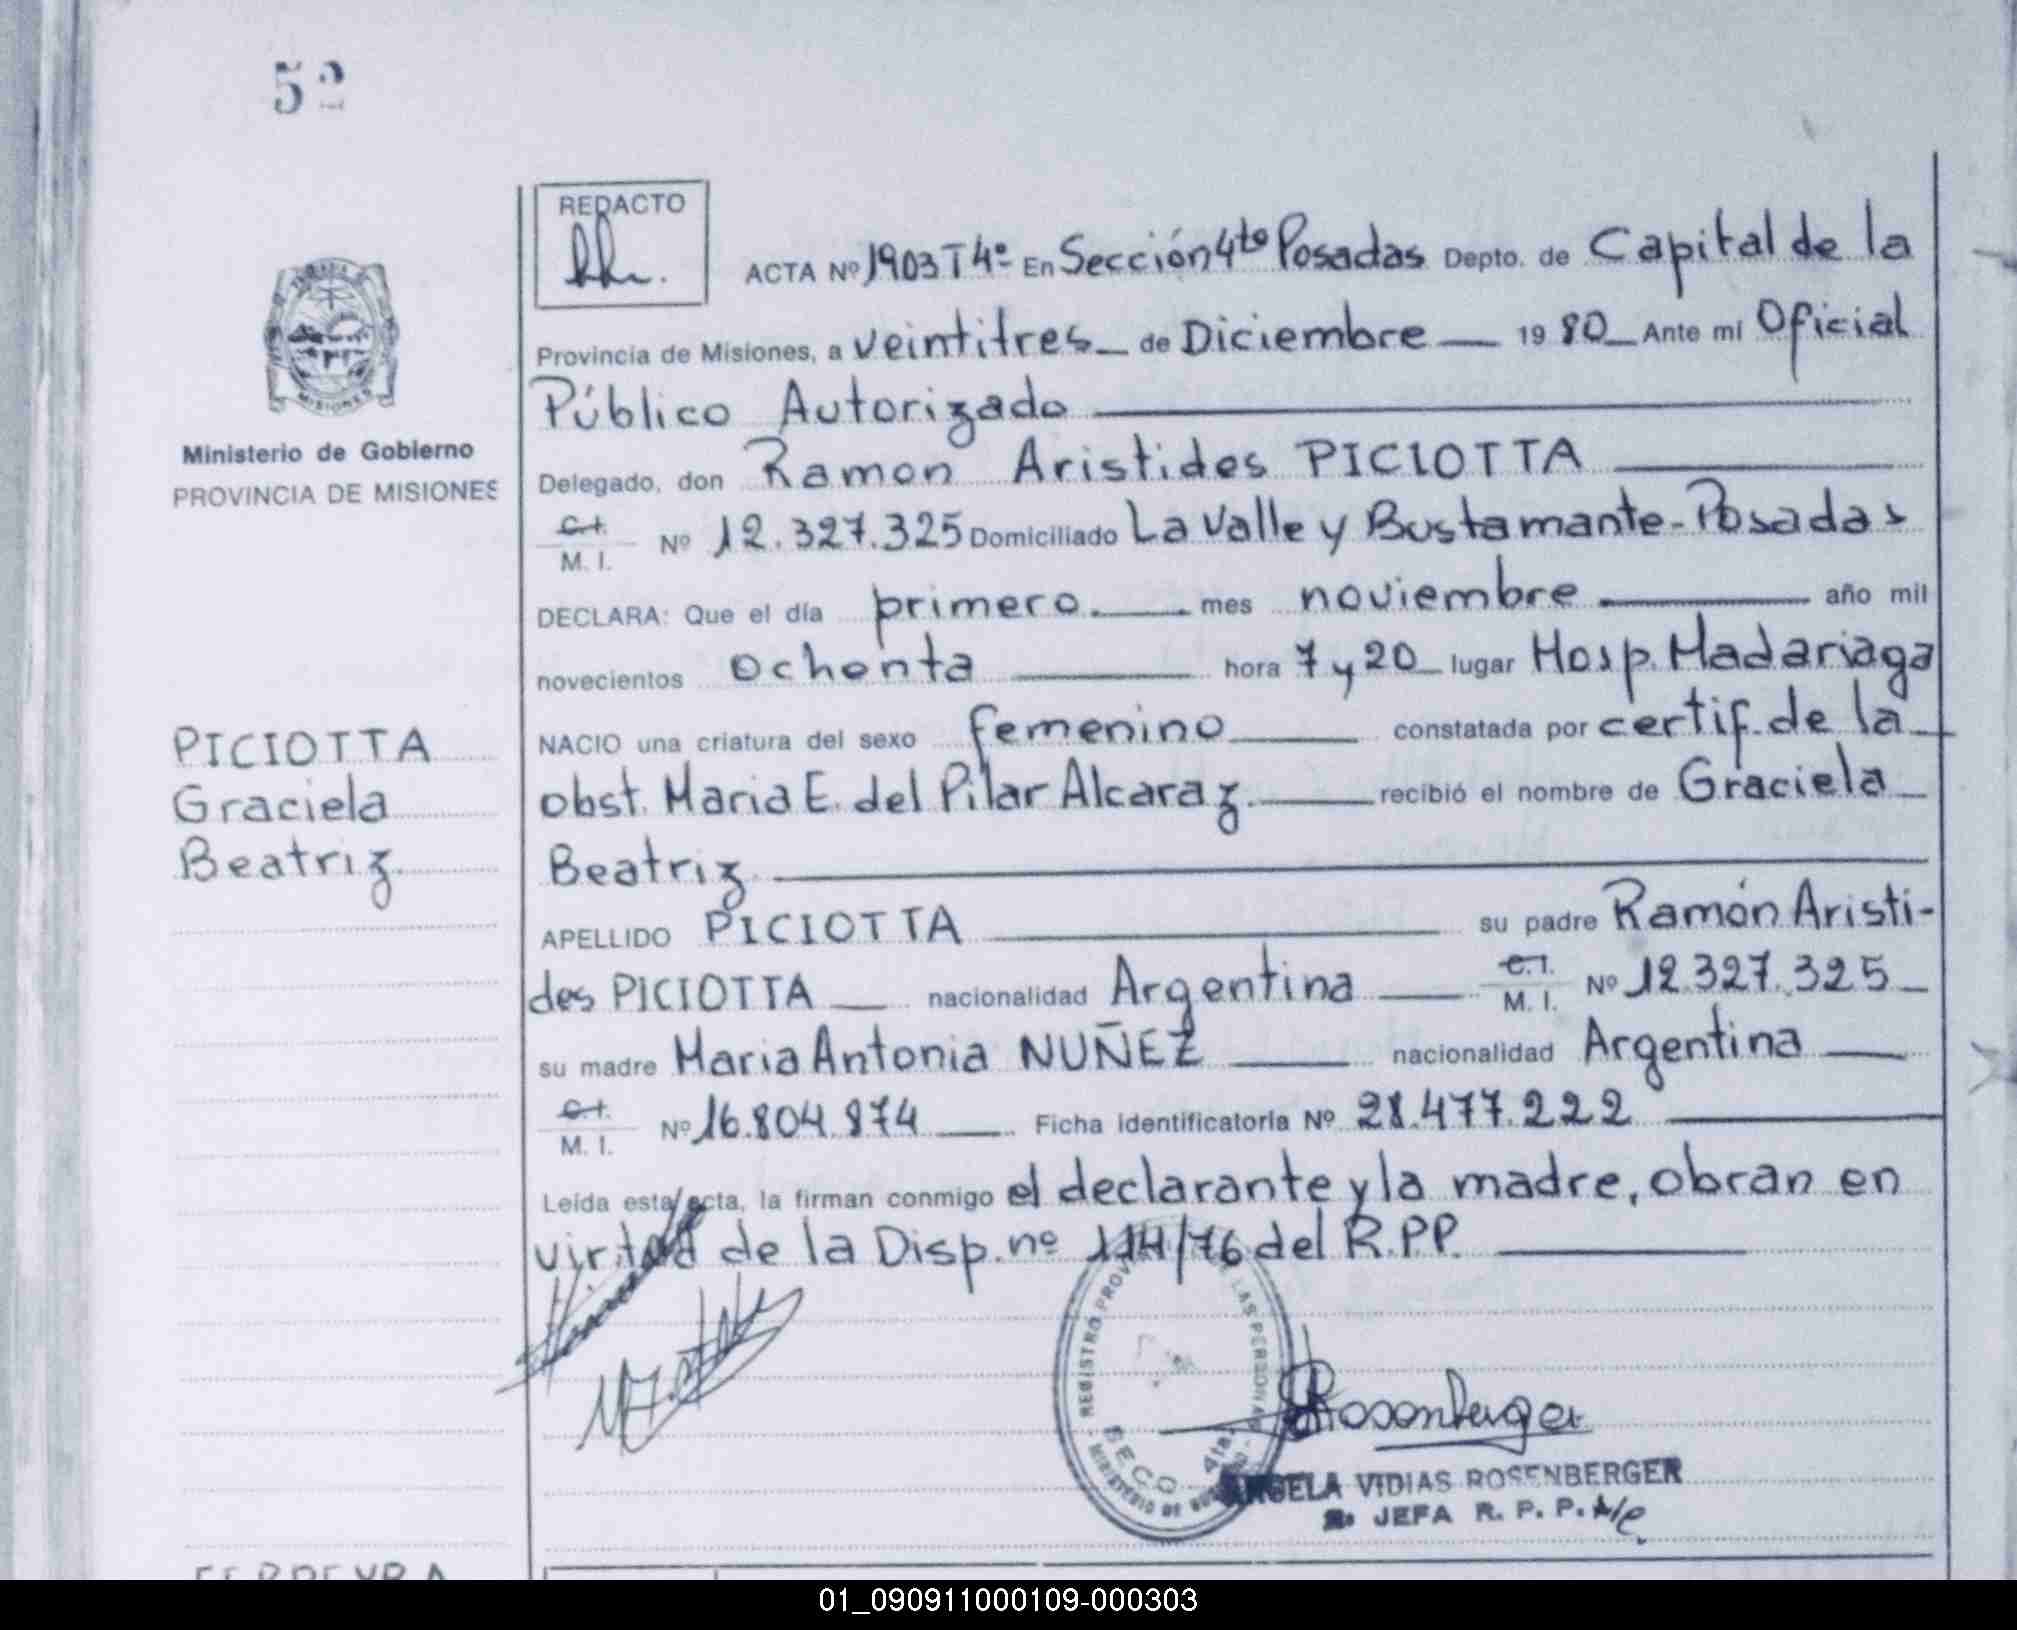 52
REDACTO
ACTA Nº 1903 T 4º En Sección 4to Posadas Depto. de Capital de la
Provincia de Misiones, a veintitres de Diciembre 1980 Ante mí Oficial
Público Autorizado
Delegado, don Ramon Aristides PICIOTTA
C.I. M. I. Nº 12.327.325 Domiciliado La Valle y Bustamante - Posadas
DECLARA: Que el día primero. mes noviembre año mil
novecientos ochenta hora 7 y 20 lugar Hosp. Madariaga
NACIO una criatura del sexo femenino constatada por certif. de la
obst. Maria E. del Pilar Alcaraz recibió el nombre de Graciela
Beatriz
APELLIDO PICIOTTA su padre Ramón Aristi-
des PICIOTTA nacionalidad Argentina C.I. M. I. Nº 12.327.325
su madre Maria Antonia NUÑEZ nacionalidad Argentina
C.I. M. I. Nº 16.804.874 Ficha identificatoria Nº 28.477.222
Leída esta acta, la firman conmigo el declarante y la madre, obran en
virtud de la Disp. nº 114/76 del R.P.P.
MISIONES
Ministerio de Gobierno
PROVINCIA DE MISIONES
PICIOTTA
Graciela
Beatriz
REGISTRO PROVI LAS PERSONAS
SECC. 4ta.
MINISTERIO DE
Rosenberger
ANGELA VIDIAS ROSENBERGER
JEFA R. P. P. A/C
FERREYRA
01_090911000109-000303